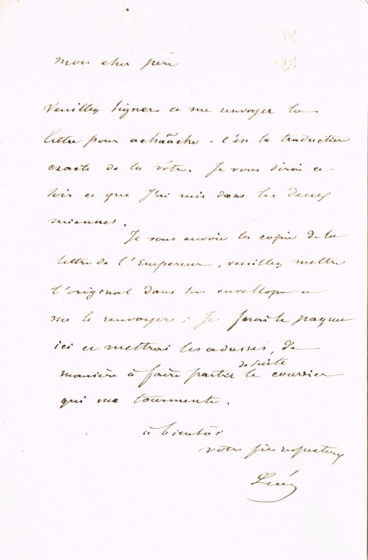 Mon cher père
Veuillez signer et me renvoyer la
lettre pour . C'est la traduction
exacte de la vôtre. Je vous dirai ce
soir ce que j'ai mis dans les deux
miennes.
Je vous envoie la copie de la
lettre de l'Empereur, veuillez mettre
l'original dans son enveloppe et
me le renvoyer ; je ferai le paquet
ici et mettrai les adresses, de
manière à faire partir de suite le courrier
qui me tourmente.
à bientôt
votre fils respectueux